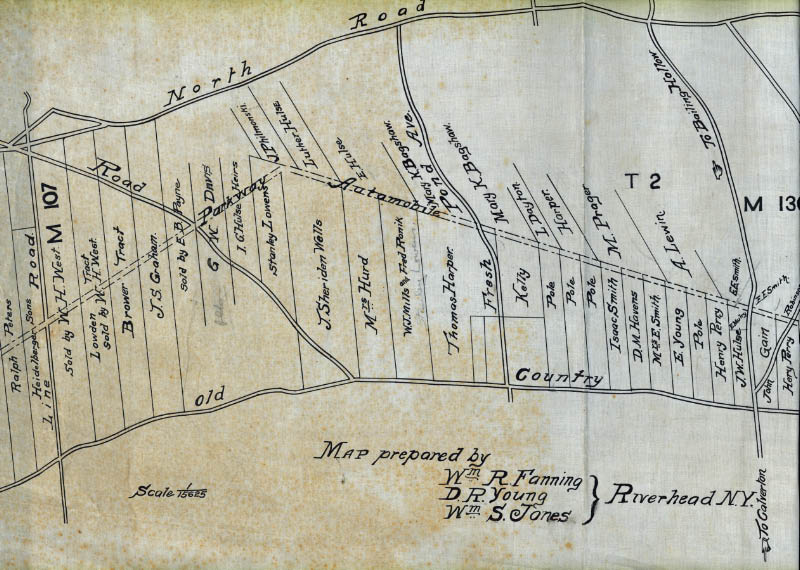 North Road
Road
Parkway
Automobile
Fresh Pond Ave.
To Baiting Hollow
T 2
M 107
M 130
Ralph Peters
Heidelberger Sons
Line Road
Sold by W. H. West.
Lowden Tract
Sold by W. H. West.
Brower Tract
J. S. Graham.
Sold by E. B. Payne.
G W Davis
I. G. Hulse Heirs
Stanley Lowens
J. Philmonski.
Luther Hulse
E. Hulse
J. Sheriden Wells
Mrs Hurd
W. J. Mills and Fred Romik
Mary K Bagshaw.
Thomas Harper.
Mary K. Bagshaw.
Mary K Bagshaw
Kelly
I. Dayton.
Harper.
Pole
Pole
Pole
M. Prager
Isaac Smith
D. M. Havens
Mrs E. Smith.
A Lewin
E. Young
Pole
Henry Perry
J W. Hulse
E.E. Smith.
E E Smith
John Gain
Hery Perry
Robinson
Old Country
Scale 1/15625
Map prepared by
Wm R. Fanning
D. R. Young
Wm S. Jones
Riverhead N.Y.
To Calverton